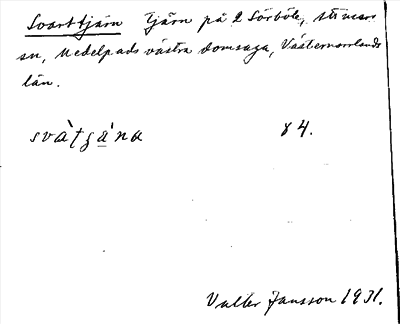 Svarttjärn Tjärn på 2 Sörböle,
sn, Medelpads västra domsaga, Västernorrlands
län.
svàtʒánа 84.
Valter Jansson 1931.